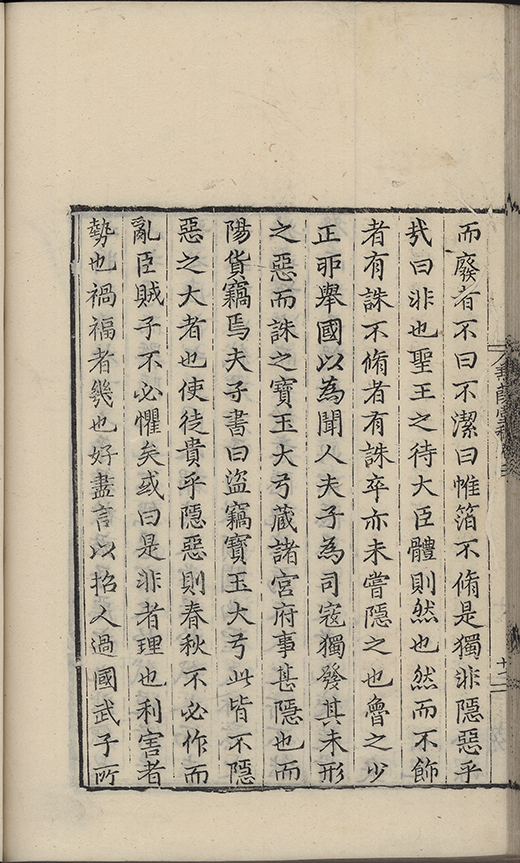 而廢者不曰不潔曰帷箔不脩是獨非隱惡乎
㦲曰非也聖王之待大臣體則然也然而不飾
者有誅不脩者有誅卒亦未嘗隱之也魯之少
正卯舉國以為聞人夫子為司寇獨發其未形
之惡而誅之寶玉大弓藏諸宮府事甚隱也而
陽貨竊焉夫子書曰盜竊寶玉大弓此皆不隱
惡之大者也使徒貴乎隱惡則春秋不必作而
亂臣賊子不必懼矣或曰是非者理也利害者
勢也禍福者幾也好盡言以招人過國武子所
十二